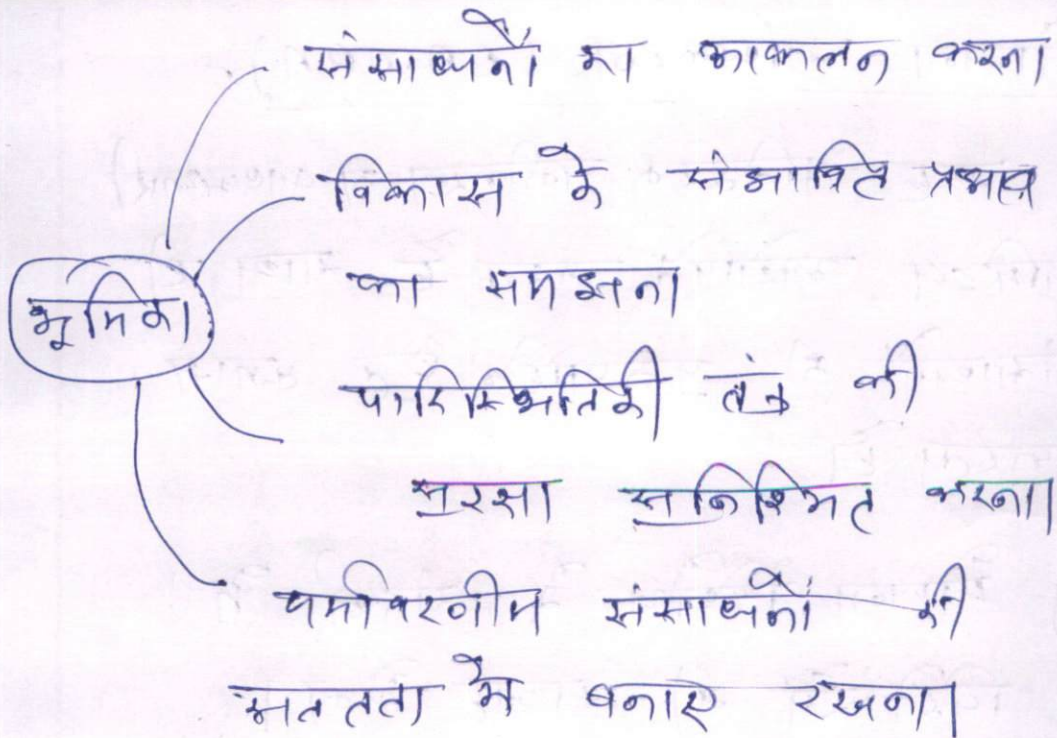 संसाधनों का आकलन करना
विकास के संभावित प्रभाव
का समझना
भूमिका
पारिस्थितिकी तंत्र की
सुरक्षा सुनिश्चित करना।
पर्यावरणीय संसाधनों की
सततता में बनाए रखना।